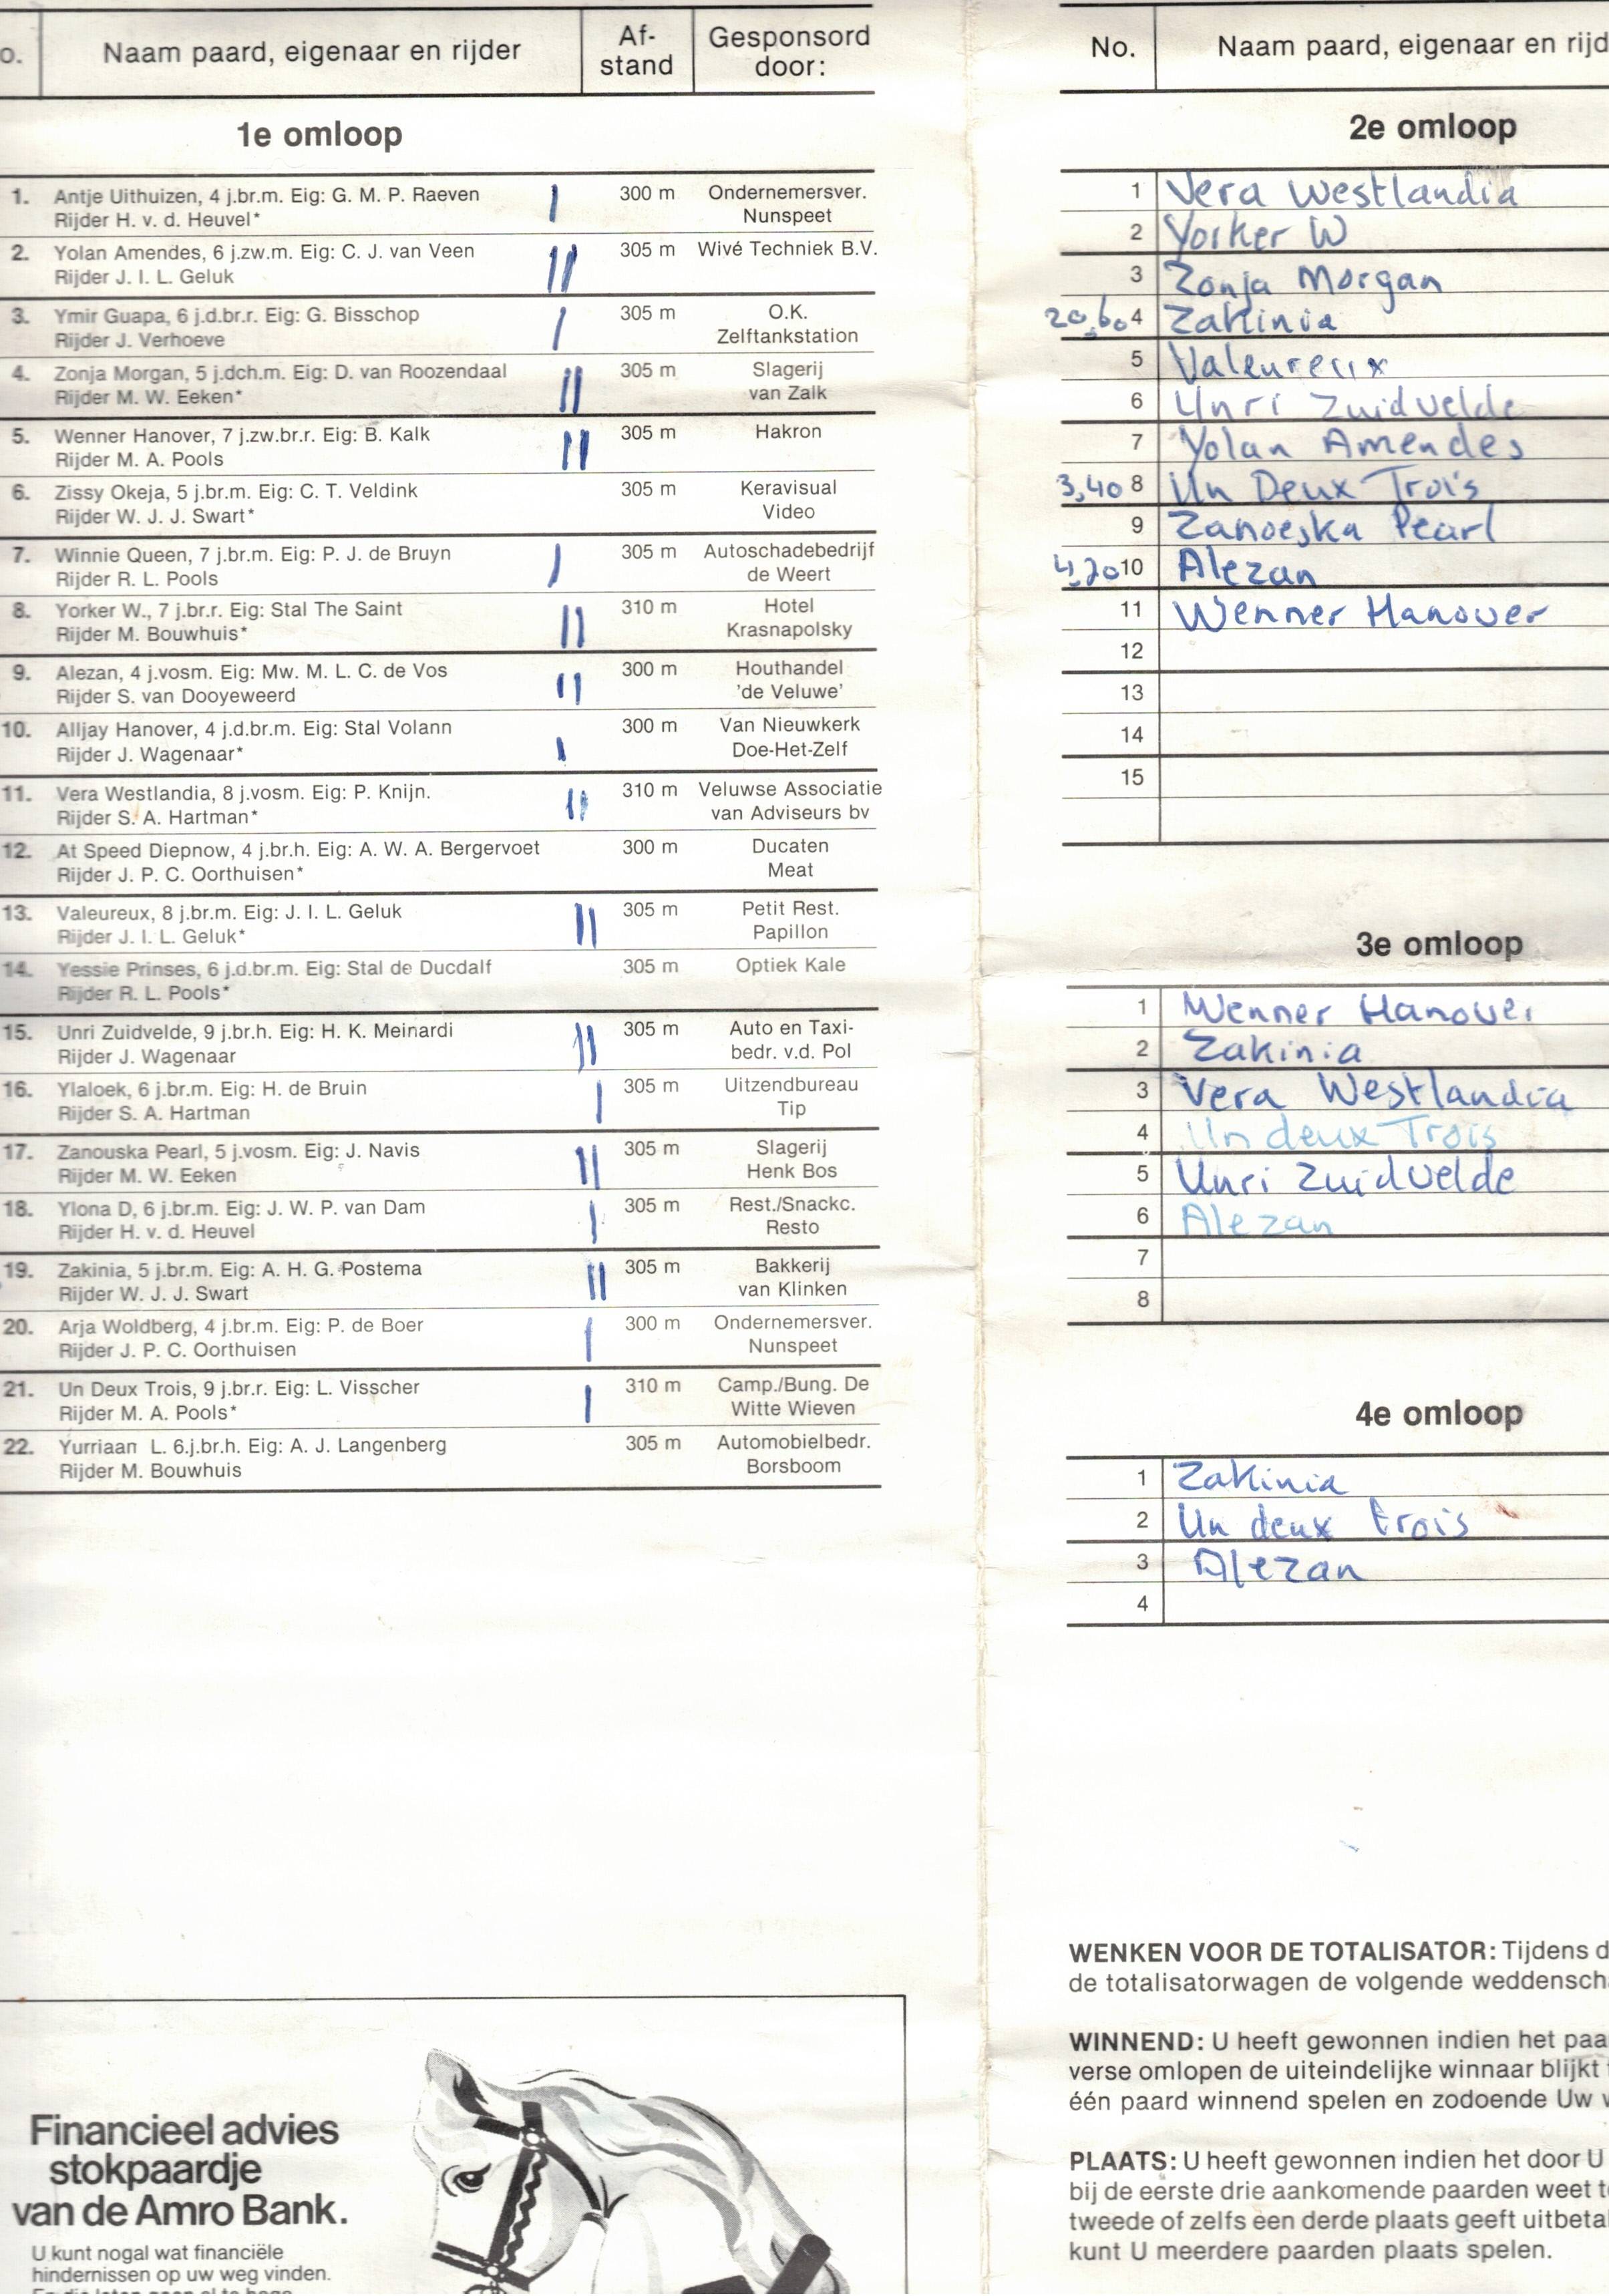 o. Naam paard, eigenaar en rijder Af- stand Gesponsord door:
1e omloop
1. Antje Uithuizen, 4 j.br.m. Eig: G. M. P. Raeven 300 m Ondernemersver.
Rijder H. v. d. Heuvel* Nunspeet
2. Yolan Amendes, 6 j.zw.m. Eig: C. J. van Veen 305 m Wivé Techniek B.V.
Rijder J. I. L. Geluk
3. Ymir Guapa, 6 j.d.br.r. Eig: G. Bisschop 305 m O.K.
Rijder J. Verhoeve Zelftankstation
4. Zonja Morgan, 5 j.dch.m. Eig: D. van Roozendaal 305 m Slagerij
Rijder M. W. Eeken* van Zalk
5. Wenner Hanover, 7 j.zw.br.r. Eig: B. Kalk 305 m Hakron
Rijder M. A. Pools
6. Zissy Okeja, 5 j.br.m. Eig: C. T. Veldink 305 m Keravisual
Rijder W. J. J. Swart* Video
7. Winnie Queen, 7 j.br.m. Eig: P. J. de Bruyn 305 m Autoschadebedrijf
Rijder R. L. Pools de Weert
8. Yorker W., 7 j.br.r. Eig: Stal The Saint 310 m Hotel
Rijder M. Bouwhuis* Krasnapolsky
9. Alezan, 4 j.vosm. Eig: Mw. M. L. C. de Vos 300 m Houthandel
Rijder S. van Dooyeweerd 'de Veluwe'
10. Alljay Hanover, 4 j.d.br.m. Eig: Stal Volann 300 m Van Nieuwkerk
Rijder J. Wagenaar* Doe-Het-Zelf
11. Vera Westlandia, 8 j.vosm. Eig: P. Knijn. 310 m Veluwse Associatie
Rijder S. A. Hartman* van Adviseurs bv
12. At Speed Diepnow, 4 j.br.h. Eig: A. W. A. Bergervoet 300 m Ducaten
Rijder J. P. C. Oorthuisen* Meat
13. Valeureux, 8 j.br.m. Eig: J. I. L. Geluk 305 m Petit Rest.
Rijder J. I. L. Geluk* Papillon
14. Yessie Prinses, 6 j.d.br.m. Eig: Stal de Ducdalf 305 m Optiek Kale
Rijder R. L. Pools*
15. Unri Zuidvelde, 9 j.br.h. Eig: H. K. Meinardi 305 m Auto en Taxi-
Rijder J. Wagenaar bedr. v.d. Pol
16. Ylaloek, 6 j.br.m. Eig: H. de Bruin 305 m Uitzendbureau
Rijder S. A. Hartman Tip
17. Zanouska Pearl, 5 j.vosm. Eig: J. Navis 305 m Slagerij
Rijder M. W. Eeken Henk Bos
18. Ylona D, 6 j.br.m. Eig: J. W. P. van Dam 305 m Rest./Snackc.
Rijder H. v. d. Heuvel Resto
19. Zakinia, 5 j.br.m. Eig: A. H. G. Postema 305 m Bakkerij
Rijder W. J. J. Swart van Klinken
20. Arja Woldberg, 4 j.br.m. Eig: P. de Boer 300 m Ondernemersver.
Rijder J. P. C. Oorthuisen Nunspeet
21. Un Deux Trois, 9 j.br.r. Eig: L. Visscher 310 m Camp./Bung. De
Rijder M. A. Pools* Witte Wieven
22. Yurriaan L. 6.j.br.h. Eig: A. J. Langenberg 305 m Automobielbedr.
Rijder M. Bouwhuis Borsboom
Financieel advies
stokpaardje
van de Amro Bank.
U kunt nogal wat financiële
hindernissen op uw weg vinden.
No. Naam paard, eigenaar en rijd
2e omloop
1 Vera Westlandia
2 Yorker W
3 Zonja Morgan
20,60 4 Zakinia
5 Valeureux
6 Unri Zuidvelde
7 Yolan Amendes
3,40 8 Un Deux Trois
9 Zanoeska Pearl
4,20 10 Alezan
11 Wenner Hanover
12
13
14
15
3e omloop
1 Wenner Hanover
2 Zakinia
3 Vera Westlandia
4 Un deux Trois
5 Unri Zuidvelde
6 Alezan
7
8
4e omloop
1 Zakinia
2 Un deux trois
3 Alezan
4
WENKEN VOOR DE TOTALISATOR: Tijdens d
de totalisatorwagen de volgende weddensch
WINNEND: U heeft gewonnen indien het paa
verse omlopen de uiteindelijke winnaar blijkt
één paard winnend spelen en zodoende Uw
PLAATS: U heeft gewonnen indien het door U
bij de eerste drie aankomende paarden weet
tweede of zelfs een derde plaats geeft uitbeta
kunt U meerdere paarden plaats spelen.